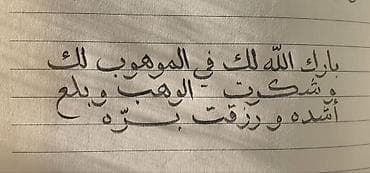 بارك الله لك في الموهوب لك
و شكرت الوهب و بلغ
أشده و رزقت برّه